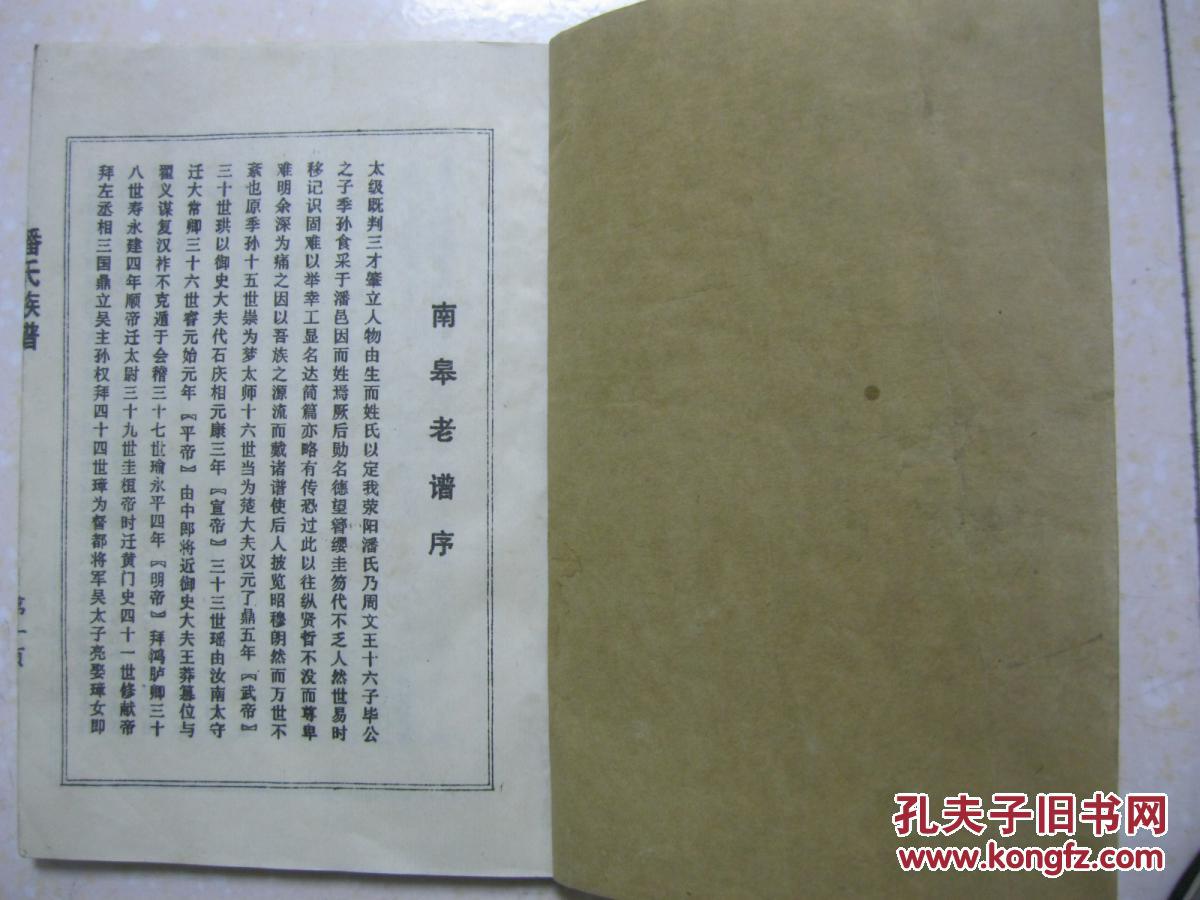 南皋老谱序
太级既判三才肇立人物由生而姓氏以定我荥阳潘氏乃周文王十六子毕公
之子季孙食采于潘邑因而姓焉厥后勋名德望簪缨圭笏代不乏人然世易时
移记识固难以举幸工显名达简篇亦略有传恐过此以往纵贤哲不没而尊卑
难明余深为痛之因以吾族之源流而戴诸谱使后人披览昭穆朗然而万世不
紊也原季孙十五世崇为梦太师十六世当为楚大夫汉元了鼎五年〖武帝〗
三十世珙以御史大夫代石庆相元康三年〖宣帝〗三十三世瑶由汝南太守
迁大常卿三十六世睿元始元年〖平帝〗由中郎将近御史大夫王莽篡位与
翟义谋复汉祚不克遁于会稽三十七世瑜永平四年〖明帝〗拜鸿胪卿三十
八世寿永建四年顺帝迁太尉三十九世圭桓帝时迁黄门史四十一世修献帝
拜左丞相三国鼎立吴主孙权拜四十四世璋为督都将军吴太子亮娶璋女即
潘氏族谱
第一页
孔夫子旧书网
www.kongfz.com